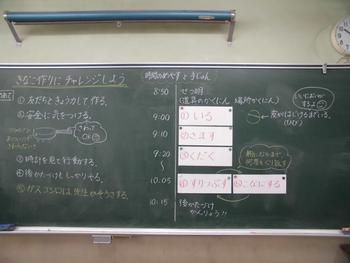 きなこ作りにチャレンジしよう
めあて
①友だちときょう力して作る。
②安全に気をつける。
さわって
OK
③時計を見て行動する。
④後かたづけもしっかりやる。
⑤ガスコンロは先生がそうさする。
時間のめやすと手じゅん
8:50 せつ明
(道具のかくにん 場所かくにん)
9:00 ①いる
皮がはじけるまでいる。
9:10 ②さます
9:20 ③くだく
〜
10:05 ④すりつぶす ⑤こなにする
何度もくり返す
10:15 後かたづけ
かんりょう!!